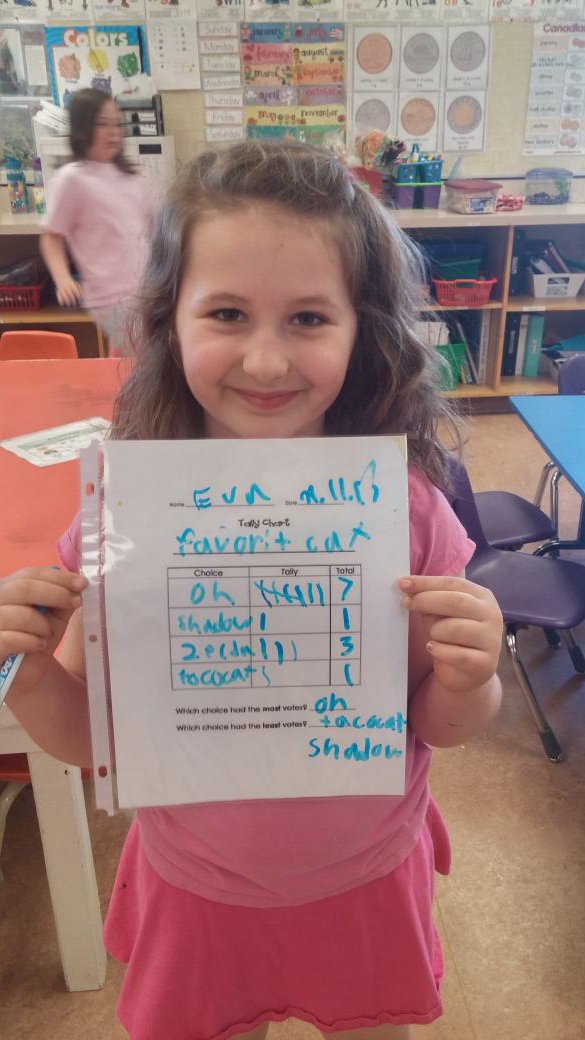 Colors
Sunday
Monday
Tuesday
Wednesday
Thursday
Friday
Saturday
january
february august
march september
april
may november
Canadian
Name Eva Date
Tally Chart
favorit cat
Choice Tally Total
oh 7
shadow 1
3
tacocat 1
Which choice had the most votes? oh
Which choice had the least votes? tacocat
shadow